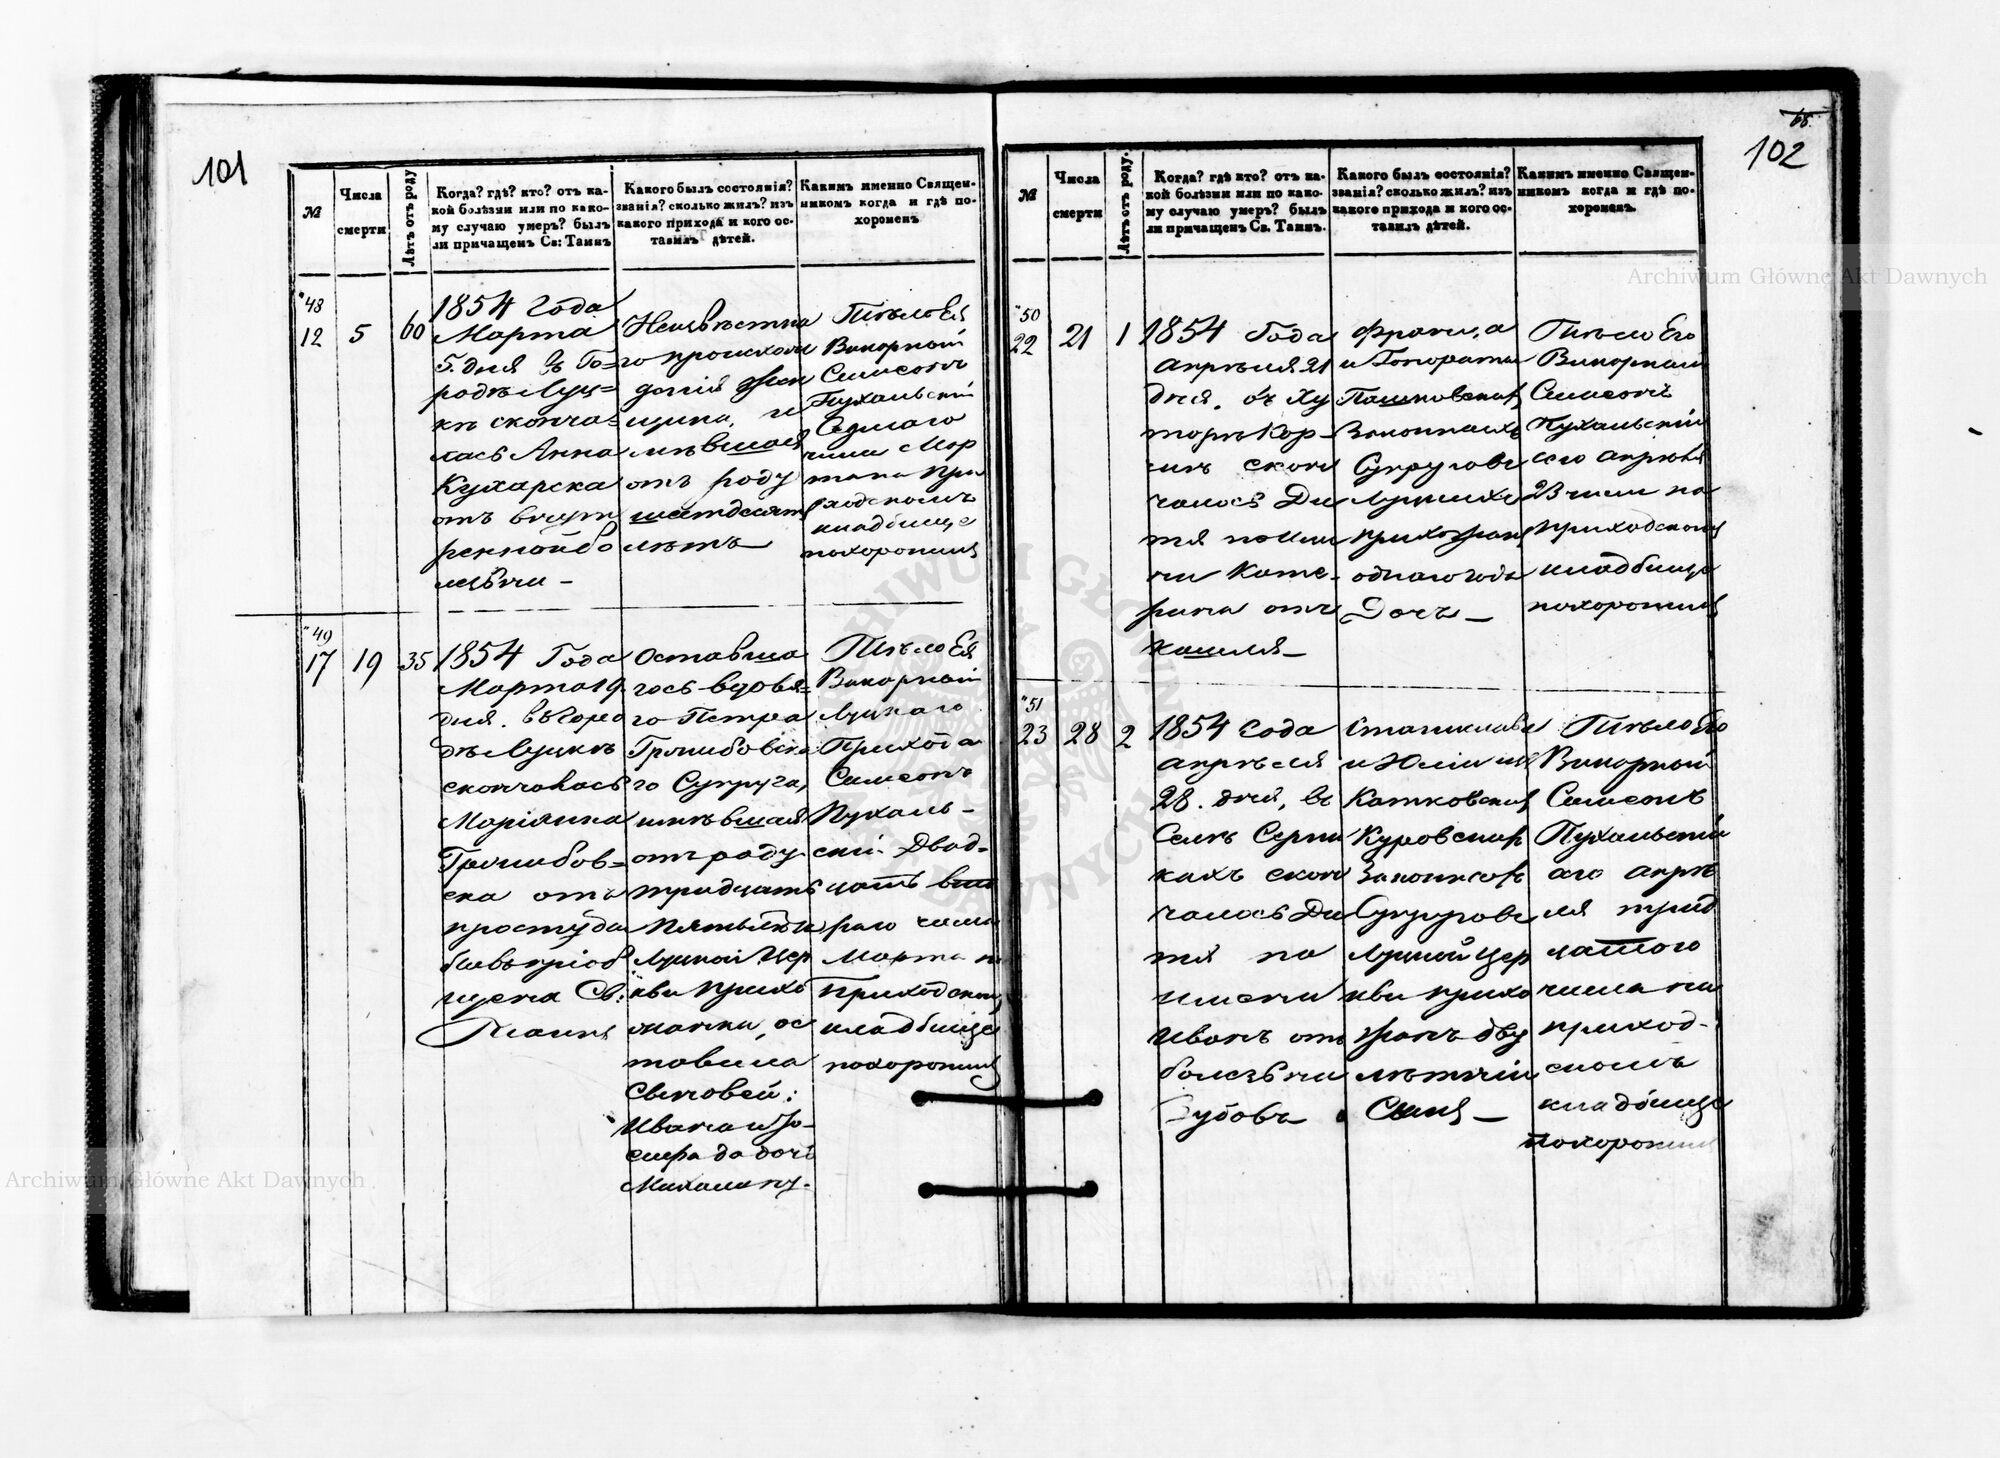 101
№
Числа смерти
Лѣтъ отъ роду
Когда? гдѣ? кто? отъ ка-
кой болѣзни или по како-
му случаю умеръ? былъ
ли причащенъ Св: Таинъ
Какого былъ состоянія?
званія? сколько жилъ? изъ
какого прихода и кого ос-
тавилъ дѣтей.
Какимъ именно Священ-
никомъ когда и гдѣ по-
хороненъ
48
12
5
60
1854 Года
Марта
5. дня въ Го-
родѣ Луц-
кѣ сконча-
лась Анна
Кухарска
отъ внут
ренной бо
лѣзни –
Неизвѣстна
го происхож
денія жен
щина, и
мѣвшая
отъ роду
шестдесят
лѣтъ
Тѣло Ея
Викарный
Симеонъ
Пухальскій
Седмаго
числа Мар
та на При
ходскомъ
кладбище
похоронилъ
49
17
19
35
1854 Года
Марта 19
дня. въ Горо
дѣ Луцкѣ
скончалась
Маріянна
Гржибов-
ска отъ
простуды
бывъ пріоб
щена Св:
Таинъ
Оставша
гось вдовѣ-
го Петра
Гржибовска
го Супруга,
имѣвшая
отъ роду
тридцать
пять лѣтъ
Луцкой Цер
кви прихо
жанка, ос
тавила
Сыновей:
Ивана и Іо-
сифа да дочь
Михалину.
Тѣло Ея
Викарный
Луцкаго
Прихода
Симеонъ
Пухаль-
скій Двад-
цать вто
раго числа
Марта на
Приходском
кладбище
похоронилъ
65
102
№
Числа
смерти
Лѣтъ отъ роду.
Когда? гдѣ? кто? отъ ка-
кой болѣзни или по како-
му случаю умеръ? былъ
ли причащенъ Св. Таинъ.
Какого былъ состоянія?
званія? сколько жилъ? изъ
какого прихода и кого ос-
тавилъ дѣтей.
Какимъ именно Священ-
никомъ когда и гдѣ по-
хороненъ.
50
22
21
1
1854 Года
Апрѣля 21
дня. въ Ху
торѣ Кор-
скон
чалось Ди
тя по име
ни Кате-
рина отъ
кашля –
Франца
и
Пашковских
Законныхъ
Супруговъ
Луцкихъ
прихожан
одного года
Дочь –
Тѣло Его
Викарный
Симеонъ
Пухальскій
сего Апрѣля
23 числа на
приходском
кладбище
похоронилъ
51
23
28
2
1854 Года
Апрѣля
28. дня, въ
Селѣ Серни
кахъ скон
чалось Ди
тя по
имени
Иванъ отъ
болезьни
Зубовъ
Станислава
и Юліи
Катковских
Куровских
Законных
Супруговъ
Луцкой Цер
кви прихо
жанъ дву
лѣтній
Сынъ –
Тѣло Его
Викарный
Симеонъ
Пухальскій
аго Апрѣ
ля трид
цатого
числа на
приход-
скомъ
кладбище
похоронилъ
Archiwum Główne Akt Dawnych
Archiwum Główne Akt Dawnych
ARCHIWUM GŁÓWNE
AKT DAWNYCH